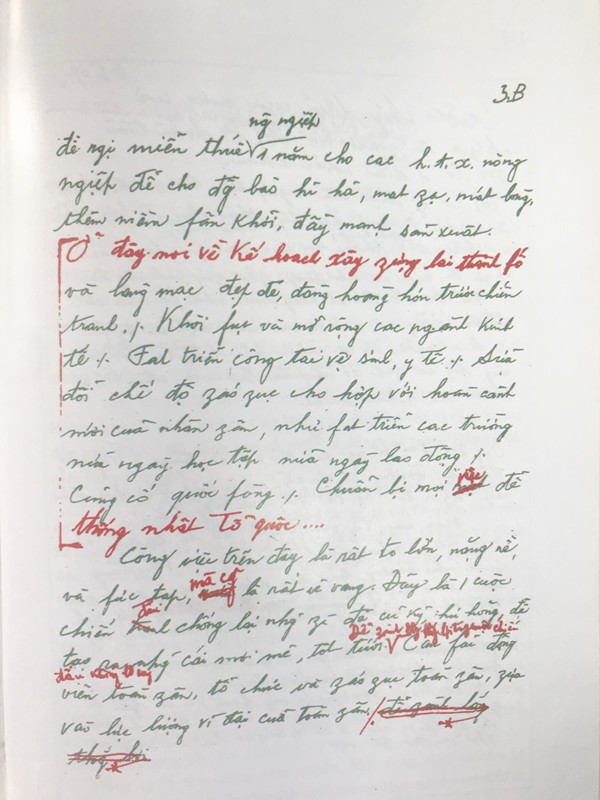 3.B
nôg ngiệp
đề ngị miễn thuế √ 1 năm cho các h.t.x. nông
ngiệp để cho đồg bào hỉ hả, mát zạ, mát lòng,
thêm niềm fấn khởi, đẩy mạnh sản xuất.
Ở đây nói về kế hoạch xây zựng lại thành fố
và làng mạc đẹp đẽ, đàng hoàng hơn trước chiến
tranh ./. Khôi fục và mở rộng các ngành kinh
tế ./. Fát triển công tác vệ sinh, y tế ./. Sửa
đổi chế độ záo zục cho hợp với hoàn cảnh
mới của nhân zân, như fát triển các trường
nửa ngày học tập nửa ngày lao động ./.
Củng cố quốc fòng ./. Chuẩn bị mọi việc để
thống nhất Tổ quốc ....
Công việc trên đây là rất to lớn, nặng nề,
và fức tạp, mà cũg là rất vẻ vang. Đây là 1 cuộc
chiến đấu chống lại nhữg gì đã cũ kỹ, hư hỏng, để
tạo ra nhữg cái mới mẻ, tốt tươi. √ Cần fải động
viên toàn zân, tổ chức và záo zục toàn zân, zựa
vào lực lượng vĩ đại của toàn zân.